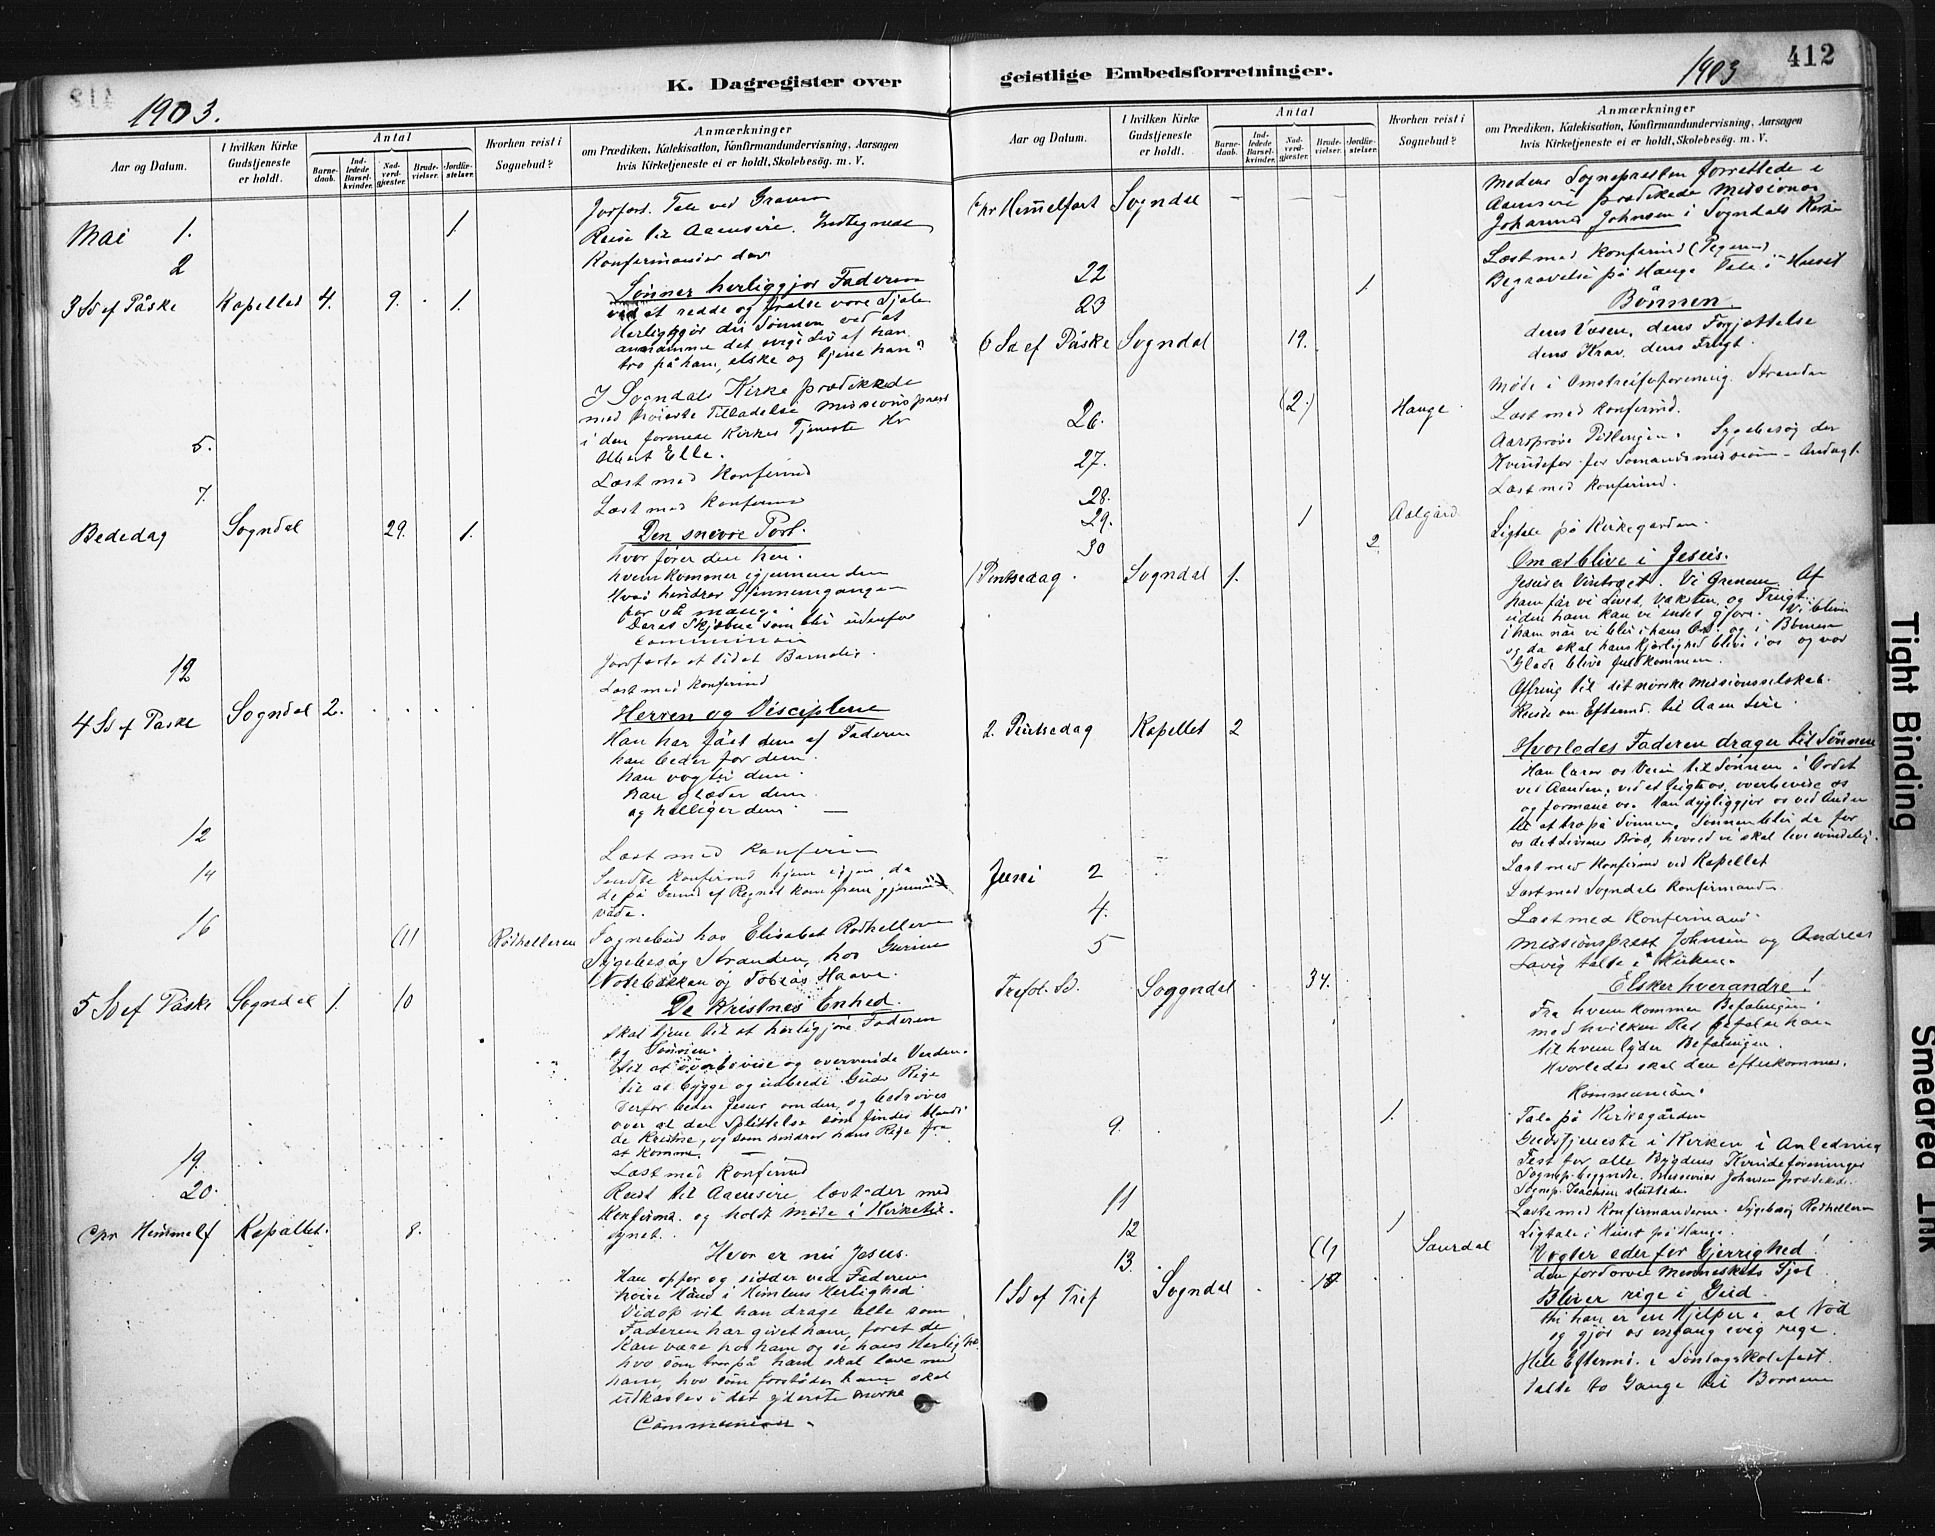 K. Dagregister over
1903.
Aar og Datum.
I hvilken Kirke Gudstjeneste er holdt.
Antal
Barnedaab.
Indledede Barselkvinder.
Nadverdgjester.
Brudevielser.
Jordfæstelser.
Hvorhen reist i Sognebud?
Anmærkninger
om Prædiken, Katekisation, Konfirmandundervisning, Aarsagen
hvis Kirketjeneste ei er holdt, Skolebesög. m. V.
Jorfæst. Tale ved Graven
Mai 1. 1
Reise til Aaensire. Indtegnede
Konfirmander der
2
Sønner herliggjør Faderen
3 Sd ef Påske Kapellet 4. 9. 1.
ved at redde og frelse vore Sjæle
Herliggjør du Sønnen ved at
annamme det evige Liv af ham
tro på ham, elske og tjene ham?
I Sogndals Kirke prædikede
med Tilladelse Missionsprest
i den Kirkes Tjeneste Hr
Albert Elle.
5.
Læst med Konfirmd
7.
Læst med Konfirmd
Bededag Sogndal 29. 1.
Den snevre Port.
hvor fører den hen.
hvem kommer igjennem den
Hvad hindrer Gjennemgangen
for så mange.
Deres Skjæbne som blir udenfor
Communion
Jordfæste et lidet Barnelig.
12
Læst med Konfirmd
4 Sd ef Påske Sogndal 2.
Herren og Disciplene
Han har fåt dem af Faderen
han beder for dem.
han vogter dem.
han glæder dem.
og helliger dem.
12
Læst med Konfirm
14
Sendte Konfirmd hjem igjen, da
de på Grund af Regnet kom frem gjennem
våde.
16 (1) Rødhelleren
Sognebud hos Elisabet Rødhelleren
Sygebesøg Stranden, hos Gurine
Nodebakken og Tobias Haave.
5 Sd ef Påske Sogndal 1. 10
De Kristnes Enhed.
skal tjene til at herliggjøre Faderen
og Sønnen.
til at overbevise og overvinde Verden.
til at bygge og udbrede Guds Rige
Derfor beder Jesus om den, og bedrøves
over al den Splittelse som findes blandt
de Kristne, og som hindrer hans Rige fra
at komme.
19.
Læst med Konfirmd
20.
Reist til Aaensire, læst der med
Konfirmd. og holdt Møde i Kirketil-
synet.
Chr Himmelf Kapellet. 8.
Hvor er nu Jesus.
Han opfor og sidder ved Faderens
høire Hånd i Himlens Herlighed
Didop vil han drage alle som
Faderen har givet ham, foret de
kan være hos ham og se hans Herlighed
hvo som tror på ham skal leve med
ham, hvo som forstøder ham skal
udkastes i det yderste Mørke
Communion
geistlige Embedsforretninger.
1903
412
Aar og Datum.
I hvilken Kirke Gudstjeneste er holdt.
Antal
Barnedaab.
Indledede Barselkvinder.
Nadverdgjester.
Brudevielser.
Jordfæstelser.
Hvorhen reist i Sognebud?
Anmærkninger
om Prædiken, Katekisation, Konfirmandundervisning, Aarsagen
hvis Kirketjeneste ei er holdt, Skolebesög m. V.
Chr Himmelfart Sogndal
Medens Sognepresten forrettede i
Aaensire prædikede Missionær
Johannes Johnsen i Sogndals Kirke
22
Læst med Konfirmd
23 1
Begravelse på Hauge Tale i Huset
6 Sd ef Påske Sogndal 19.
Bönnen
dens Væsen, dens Forjættelse
dens Krav, dens Frugt.
Møde i Stranden
26. (2.) Hauge.
Læst med Konfirmd.
27.
Aarsprøve. Sygebesøg der
Kvindefor. for Sømandsmission - Andagt.
28.
Læst med Konfirmd.
29. 1 Aalgård
30 2.
Ligtale på Kirkegården.
1 Pintsedag Sogndal 1.
Om at blive i Jesus.
Jesus er Vintræet. Vi Grenene. Af
ham får vi Livet, Væksten og Frugt.
uden ham kan vi intet gjøre. Vi bliver
i ham når vi blir i hans Ord og i Bönnen
og da skal hans Kjærlighed blive i os og vor
Glæde blive fuldkommen.
Offring til det norske Missionsselskab.
Reiste om Efterm. til Aaensire.
2. Pintsedag Kapellet 2
Hvorledes Faderen drager til Sønnen
Han lærer os Veien til Sønnen i Ordet
ved Aanden, ved at overbevise os
og formane os. Han dygtiggjør os ved Aanden
til at tro på Sønnen. Sønnen blir da for
os det Livsens Brød, hvorved vi skal leve evindelig.
Juni 2
Læst med Konfirmd ved Kapellet
Læst med Sogndals Konfirmander
4.
Læst med Konfirmand.
5
Missionsprest Johnsen og Andreas
Lavig talte i Kirken.
Trefol. Sd. Soggndal 34.
Elsker hverandre!
Fra hvem kommer Befalingen
med hvilken Ret befaler han
til hvem lyder Befalingen.
Hvorledes skal den efterkommes.
Kommunion.
9. 1.
Tale på Kirkegården
Gudstjeneste i Kirken i Anledning
Fest for alle Bygdens Kvindeforeninger
Sognep. begyndte, Missionær Johnsen prædikede.
Sognep. Joachim sluttede.
11
Læste med Konfirmanderne. Sygebesøg Rødhelleren
12 1
Ligtale i Huset på Hauge.
13. (1) Saurdal
1 Sd ef Tref Sogndal 18
Vogter eder for Gjerrighed!
den fordærver Menneskets Sjæl
Bliver rige i Gud.
thi han er en Hjelper i al Nød
og gjør os engang evig rige.
Hele Efterm. i Søndagskolefest.
Talte to Gange til Børnene
Tight Binding
Smeared Ink